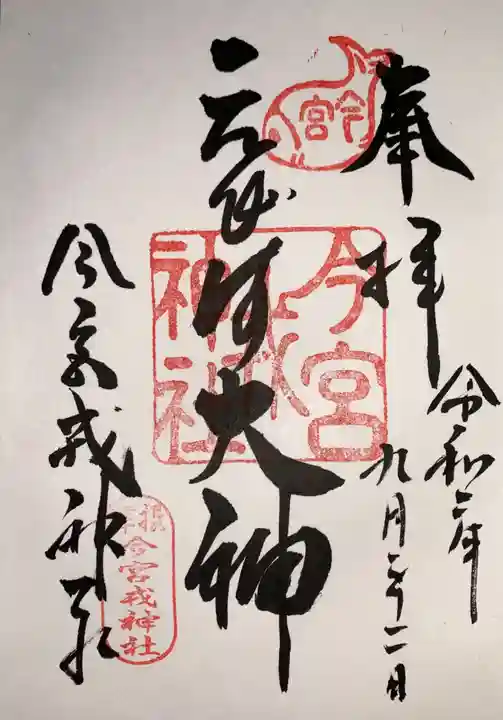 奉拝
令和二年
九月二十二日
大神
今宮戎神社
今宮
今宮戎神社
今宮戎神社